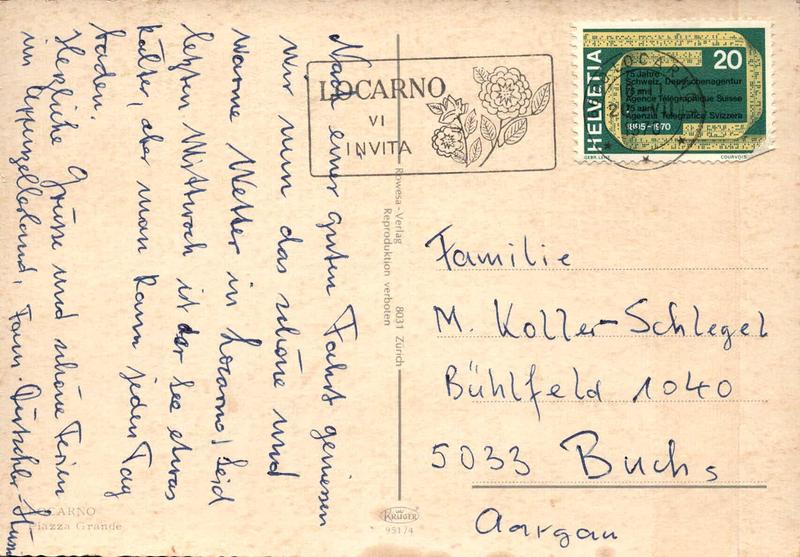 Nach einer guten Fahrt geniessen
wir nun das schöne und
warme Wetter in Locarno! Seid
letzten Mittwoch ist der See etwas
kälter, aber man kann jeden Tag
baden.
Herzliche Grüsse und schöne Ferien
im Appenzellerland, Fam.
LOCARNO
VI
INVITA
HELVETIA
20
75 Jahre
Schweiz. Depeschenagentur
75 ans
Agence Télégraphique Suisse
75 anni
Agenzia Telegrafica Svizzera
1895-1970
GEBR. LENZ
COURVOISIER
Rowesa-Verlag 8031 Zürich
Reproduktion verboten
Familie
M. Koller-Schlegel
Bühlfeld 1040
5033 Buchs
Aargau
LOCARNO
Piazza Grande
KRÜGER
951/4